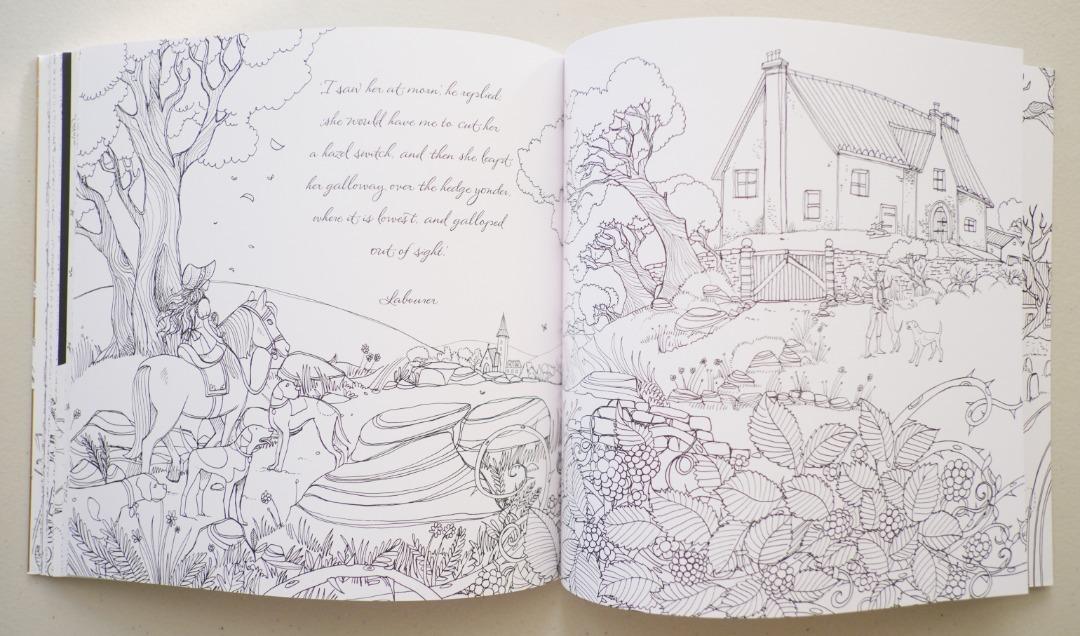 'I saw her at morn', he replied,
'she would have me to cut her
a hazel switch, and then she leapt
her galloway over the hedge yonder,
where it is lowest, and galloped
out of sight.'
Labourer